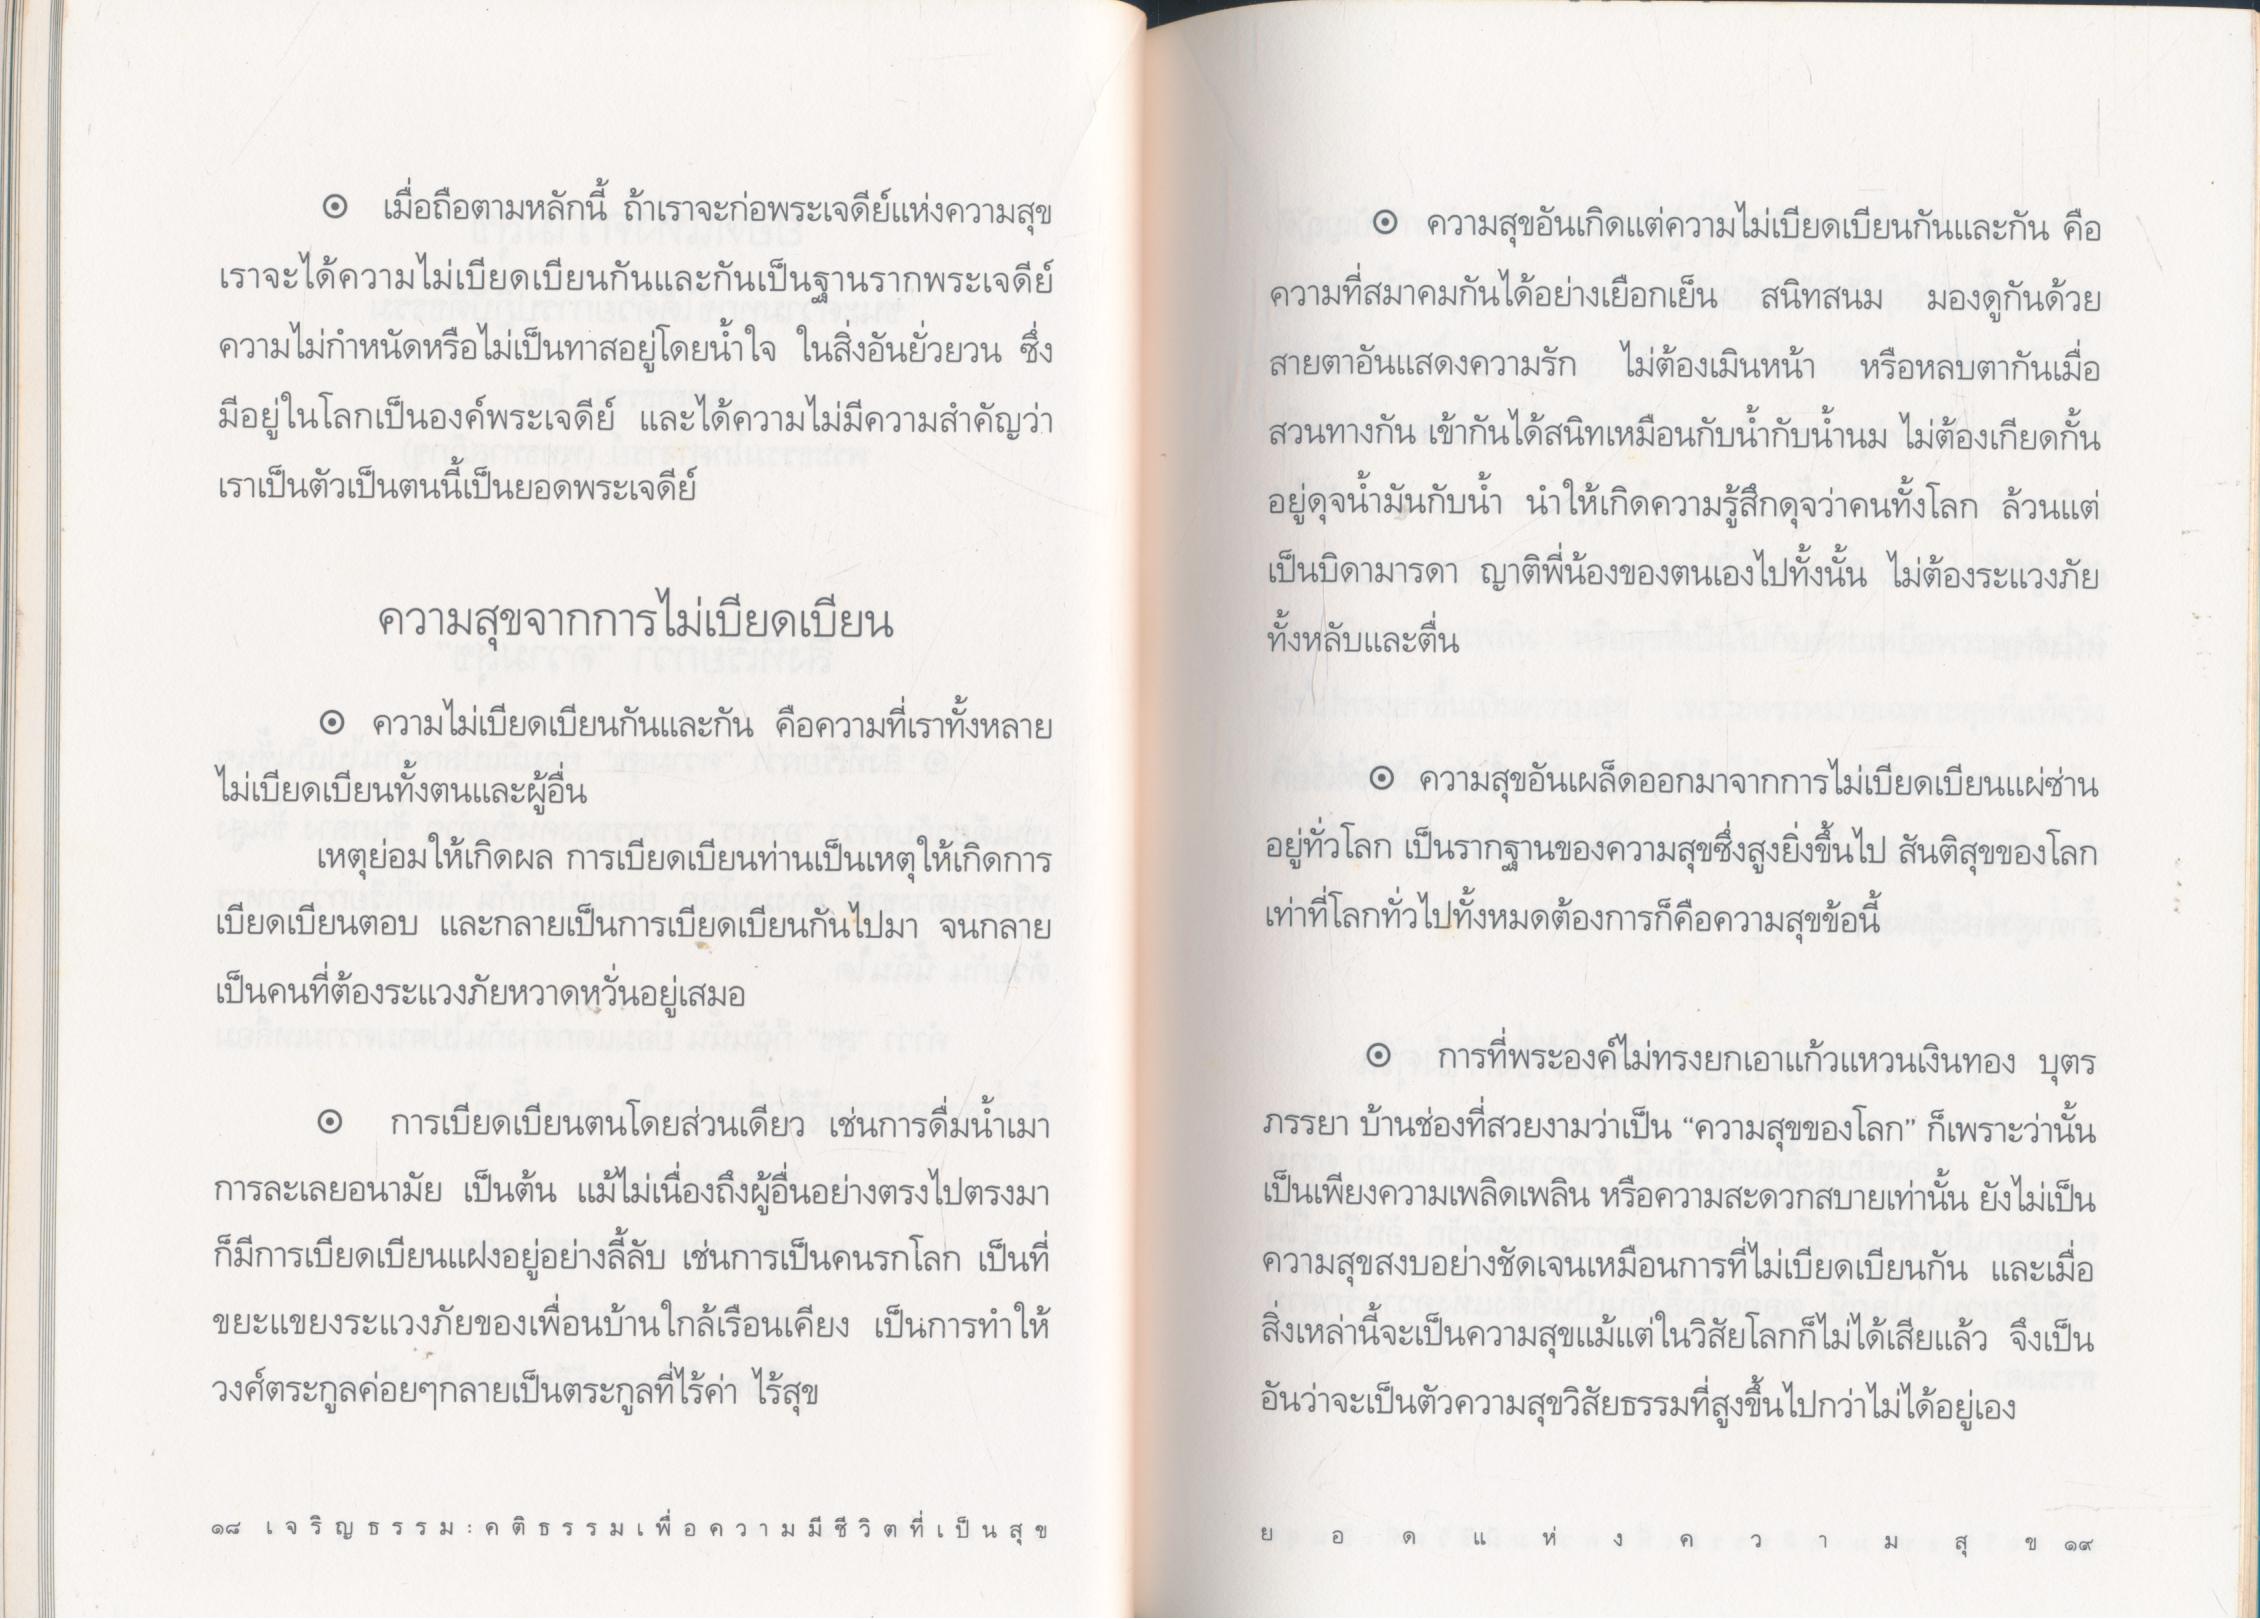 ⊙ เมื่อถือตามหลักนี้ ถ้าเราจะก่อพระเจดีย์แห่งความสุข
เราจะได้ความไม่เบียดเบียนกันและกันเป็นฐานรากพระเจดีย์
ความไม่กำหนัดหรือไม่เป็นทาสอยู่โดยน้ำใจ ในสิ่งอันยั่วยวน ซึ่ง
มีอยู่ในโลกเป็นองค์พระเจดีย์ และได้ความไม่มีความสำคัญว่า
เราเป็นตัวเป็นตนนี้เป็นยอดพระเจดีย์
ความสุขจากการไม่เบียดเบียน
⊙ ความไม่เบียดเบียนกันและกัน คือความที่เราทั้งหลาย
ไม่เบียดเบียนทั้งตนและผู้อื่น
เหตุย่อมให้เกิดผล การเบียดเบียนท่านเป็นเหตุให้เกิดการ
เบียดเบียนตอบ และกลายเป็นการเบียดเบียนกันไปมา จนกลาย
เป็นคนที่ต้องระแวงภัยหวาดหวั่นอยู่เสมอ
⊙ การเบียดเบียนตนโดยส่วนเดียว เช่นการดื่มน้ำเมา
การละเลยอนามัย เป็นต้น แม้ไม่เนื่องถึงผู้อื่นอย่างตรงไปตรงมา
ก็มีการเบียดเบียนแฝงอยู่อย่างลี้ลับ เช่นการเป็นคนรกโลก เป็นที่
ขยะแขยงระแวงภัยของเพื่อนบ้านใกล้เรือนเคียง เป็นการทำให้
วงศ์ตระกูลค่อยๆกลายเป็นตระกูลที่ไร้ค่า ไร้สุข
๑๘ เจริญธรรม:คติธรรมเพื่อความมีชีวิตที่เป็นสุข
⊙ ความสุขอันเกิดแต่ความไม่เบียดเบียนกันและกัน คือ
ความที่สมาคมกันได้อย่างเยือกเย็น สนิทสนม มองดูกันด้วย
สายตาอันแสดงความรัก ไม่ต้องเมินหน้า หรือหลบตากันเมื่อ
สวนทางกัน เข้ากันได้สนิทเหมือนกับน้ำกับน้ำนม ไม่ต้องเกียดกั้น
อยู่ดุจน้ำมันกับน้ำ นำให้เกิดความรู้สึกดุจว่าคนทั้งโลก ล้วนแต่
เป็นบิดามารดา ญาติพี่น้องของตนเองไปทั้งนั้น ไม่ต้องระแวงภัย
ทั้งหลับและตื่น
⊙ ความสุขอันเผล็ดออกมาจากการไม่เบียดเบียนแผ่ซ่าน
อยู่ทั่วโลก เป็นรากฐานของความสุขซึ่งสูงยิ่งขึ้นไป สันติสุขของโลก
เท่าที่โลกทั่วไปทั้งหมดต้องการก็คือความสุขข้อนี้
⊙ การที่พระองค์ไม่ทรงยกเอาแก้วแหวนเงินทอง บุตร
ภรรยา บ้านช่องที่สวยงามว่าเป็น “ความสุขของโลก” ก็เพราะว่านั้น
เป็นเพียงความเพลิดเพลิน หรือความสะดวกสบายเท่านั้น ยังไม่เป็น
ความสุขสงบอย่างชัดเจนเหมือนการที่ไม่เบียดเบียนกัน และเมื่อ
สิ่งเหล่านี้จะเป็นความสุขแม้แต่ในวิสัยโลกก็ไม่ได้เสียแล้ว จึงเป็น
อันว่าจะเป็นตัวความสุขวิสัยธรรมที่สูงขึ้นไปกว่าไม่ได้อยู่เอง
ยอดแห่งความสุข ๑๙